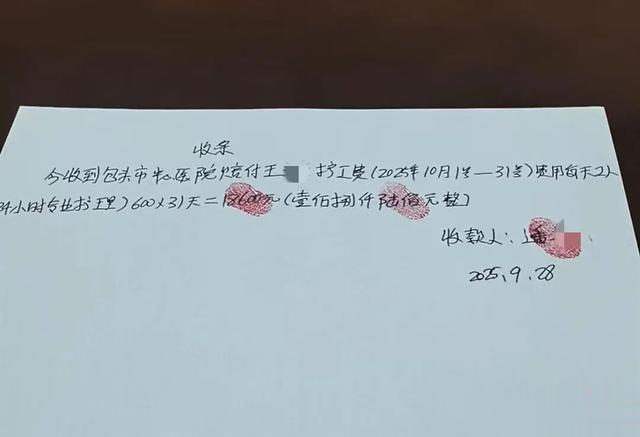 收条
今收到包头市中心医院赔付王 护工费(2025年10月1号—31号)费用每天2人
24小时专业护理)600×31天=18600元(壹佰捌仟陆佰元整)
收款人:潘
2025.9.28